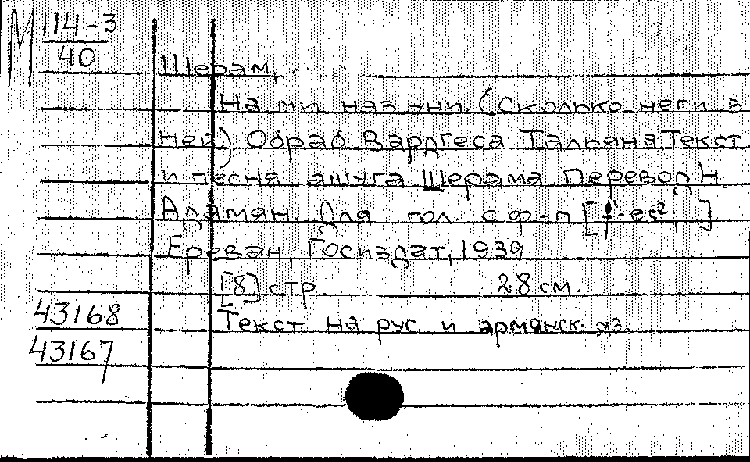 М 114-3
40
Шерам,
На ми наз ани. (Сколько неги в
ней) Обраб Вардгеса Тальяна Текст
и песня ашуга Шерама Перевод Н
Адамян. Для гол. с ф-п
Ереван Госиздат, 1939
[8] стр 28 см.
43168 Текст на рус и армянск. яз.
43167